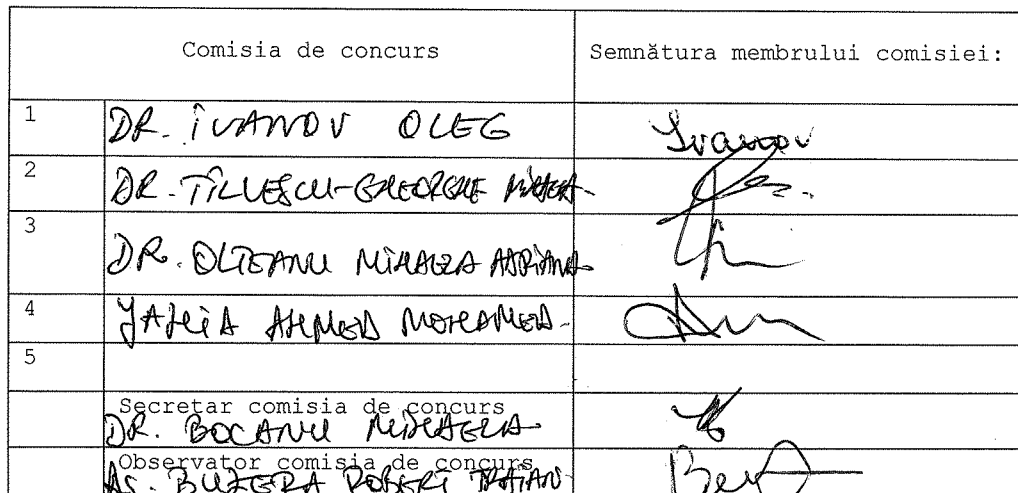 Comisia de concurs Semnătura membrului comisiei:
1 DR. IVANOV OLEG Ivanov
2 DR. TÎLVESCU-GHEORGHE
3 DR. OLTEANU MIHAELA ADRIANA
4 AHMED MOHAMED
5
Secretar comisia de concurs
DR. BOCANU MIHAELA
Observator comisia de concurs
AS. ROBERT TRAIAN